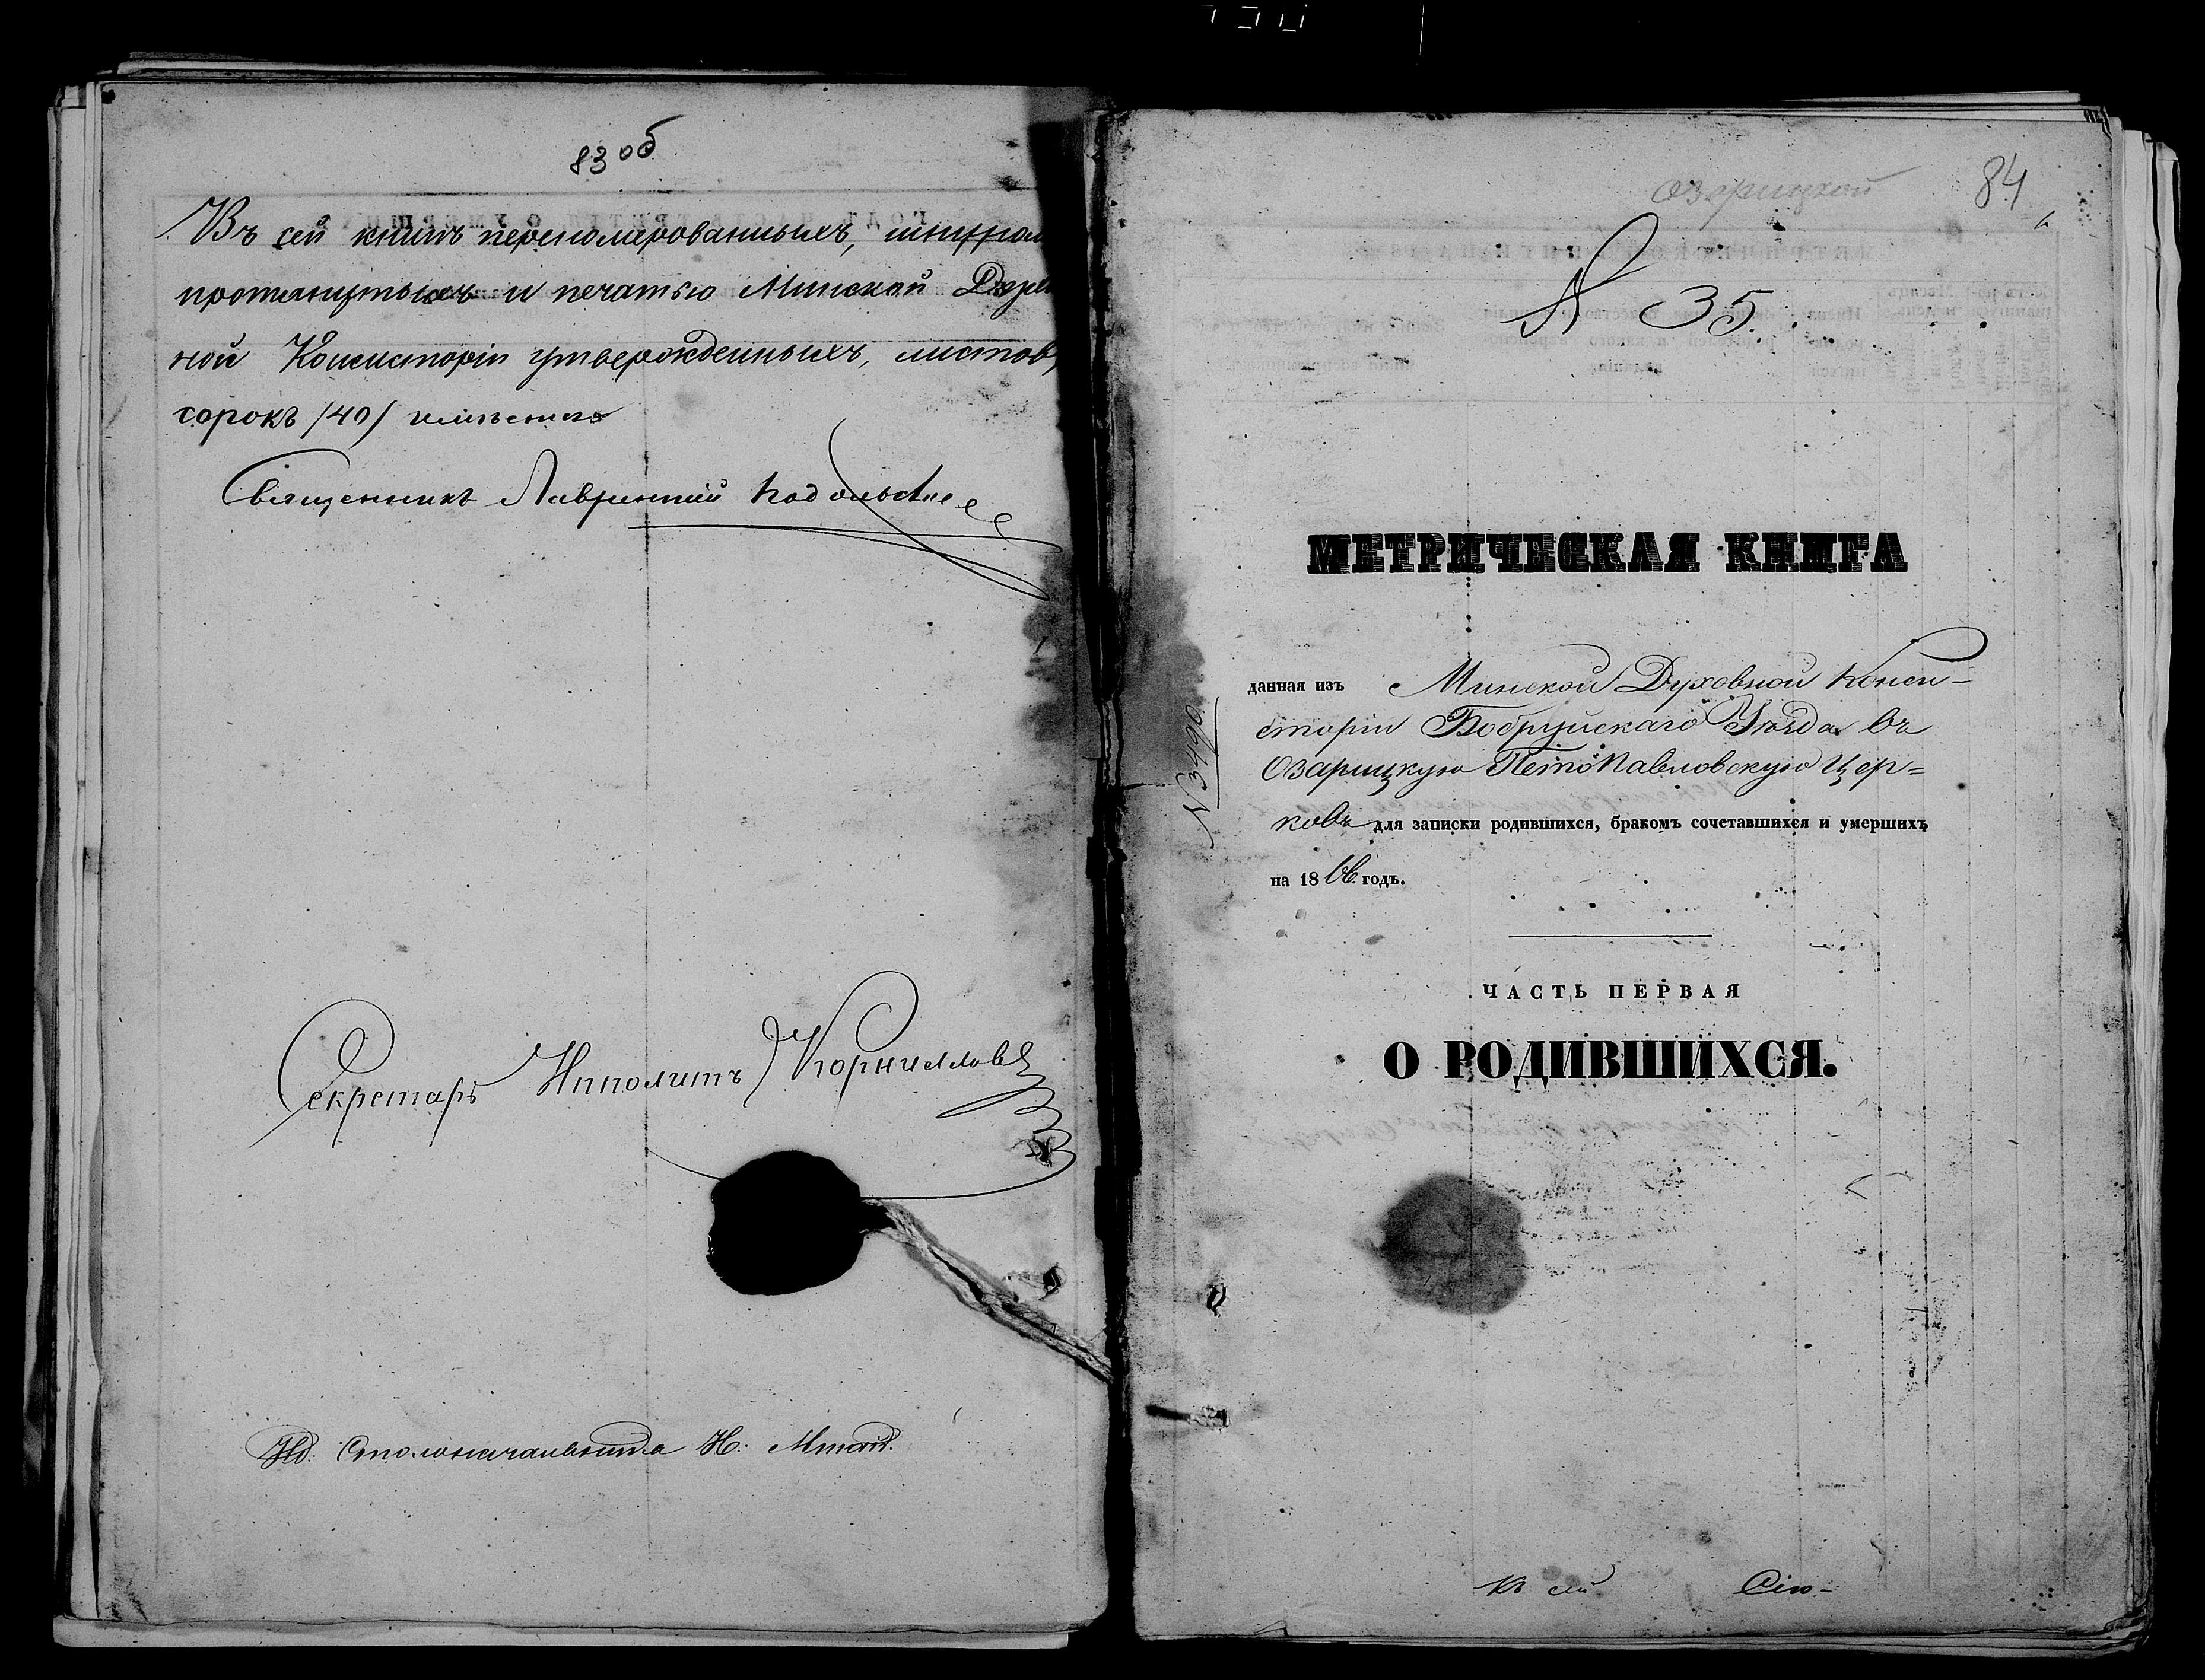 83 об
Въ сей книгѣ перенумерованныхъ, шнуром
протянутыхъ и печатью Минской Духов
ной Консисторіи утвержденныхъ, листовъ
сорокъ /40/ имѣется
Священникъ Лаврентій Подольскій
Секретарь Ипполитъ Корниллов
Столоначальника Н:
Озарицкой
84
№ 35.
МЕТРИЧЕСКАЯ КНИГА
данная изъ Минской Духовной Конси-
сторіи Бобруйскаго Уѣзда въ
Озарицкую ПетроПавловскую Цер=
ковь для записки родившихся, бракомъ сочетавшихся и умершихъ
на 1866 годъ.
№ 3490
ЧАСТЬ ПЕРВАЯ
О РОДИВШИХСЯ.
Къ сей